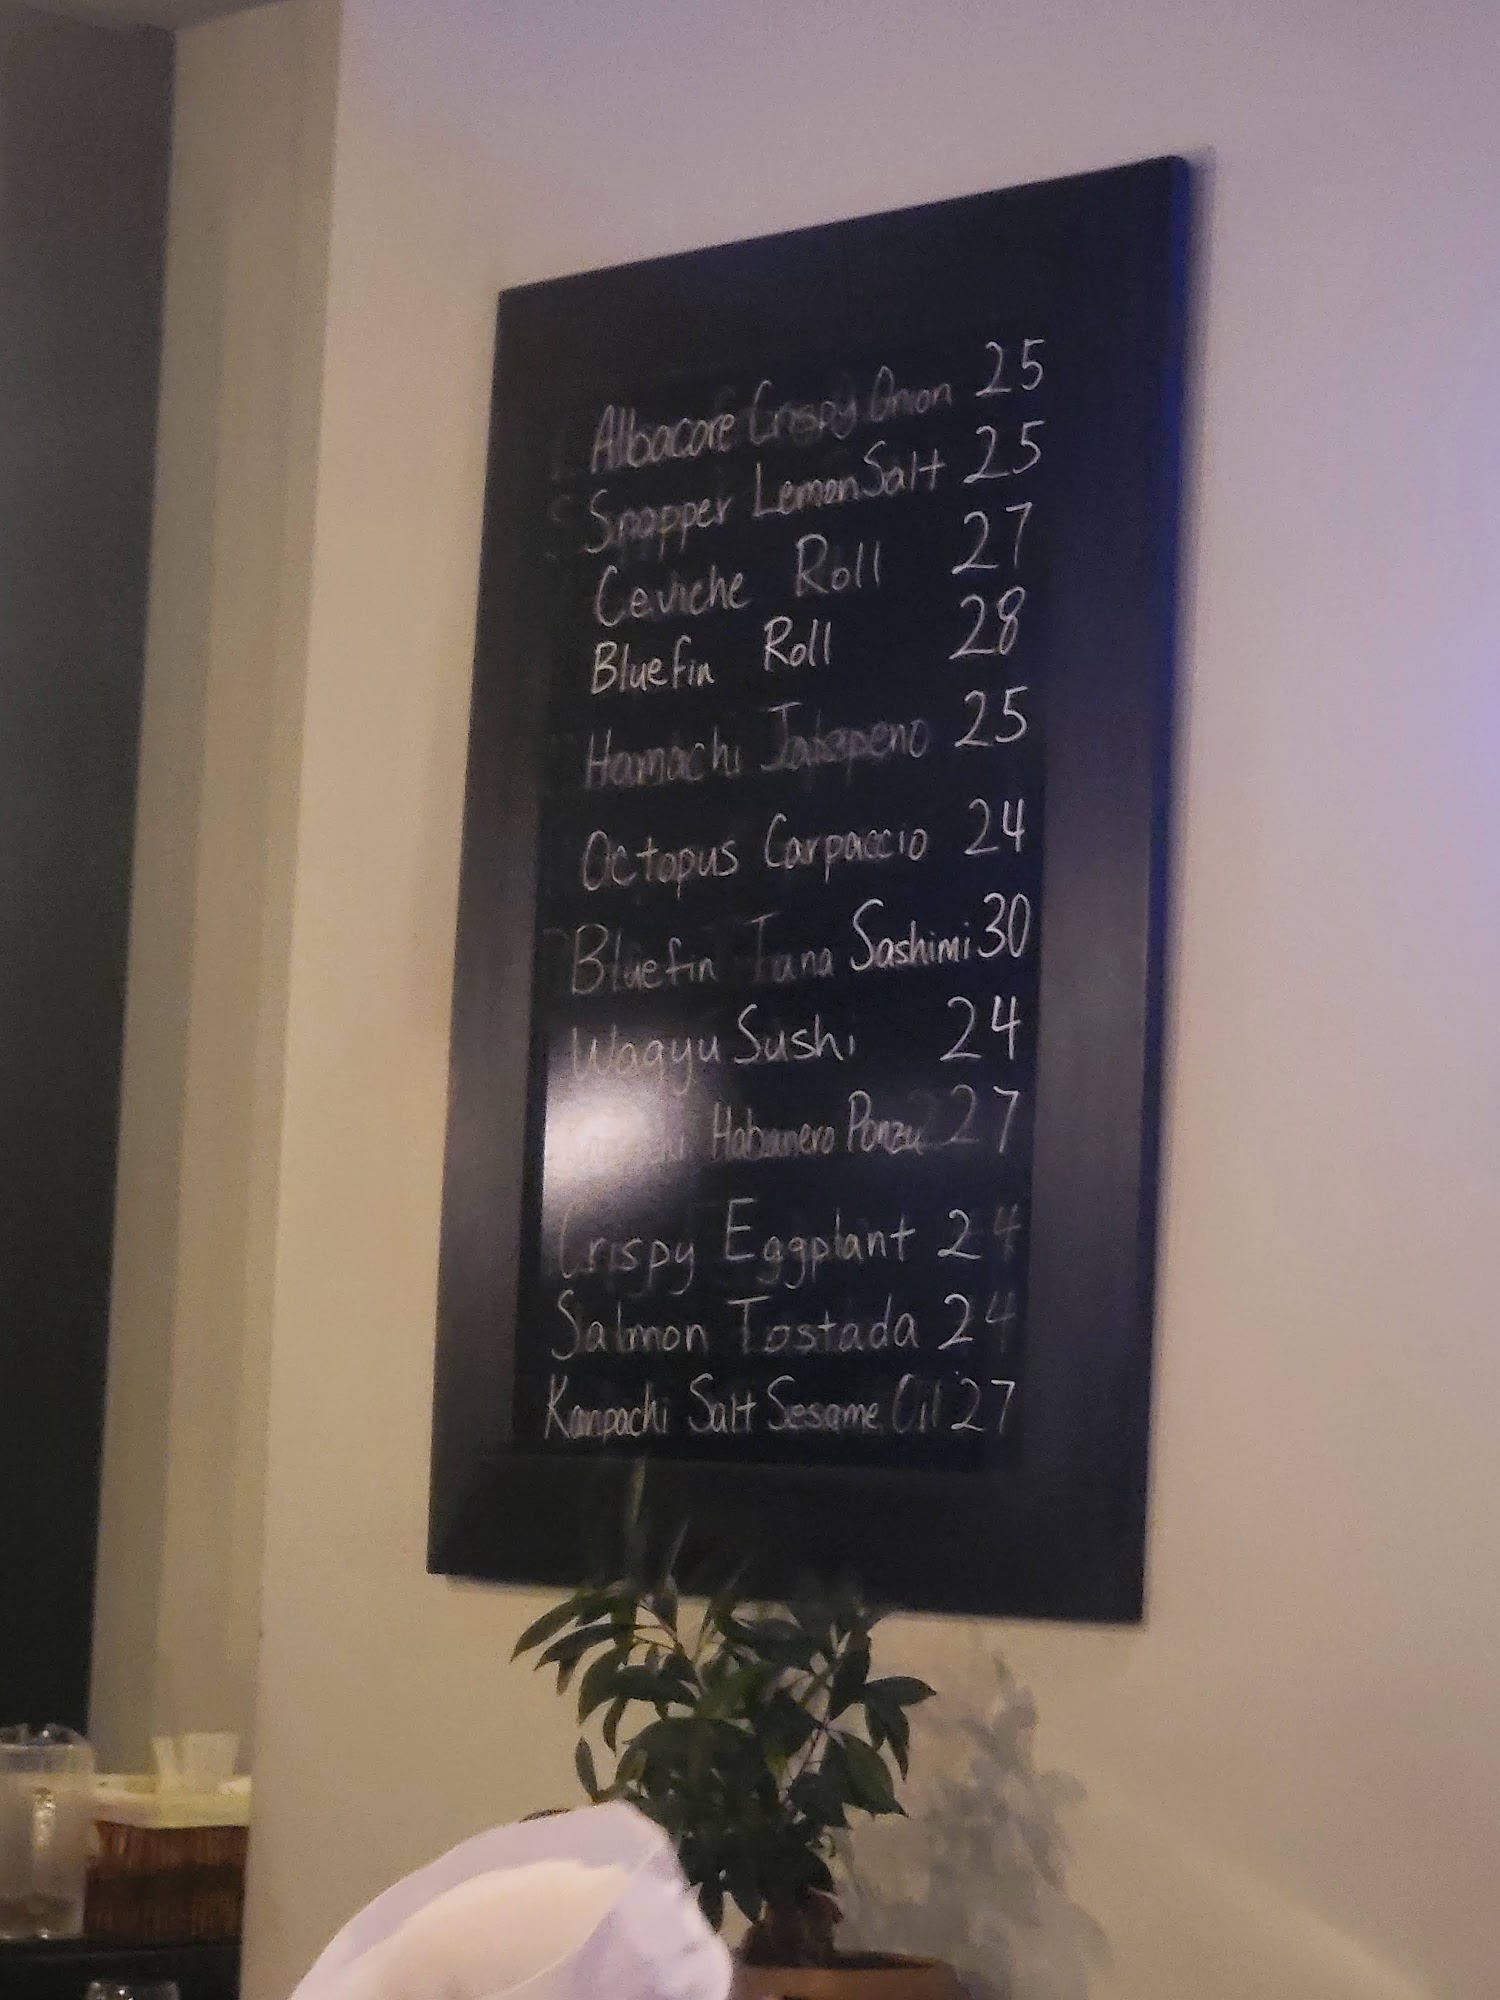 Albacore Crispy Onion 25
Snapper Lemon Salt 25
Ceviche Roll 27
Bluefin Roll 28
Hamachi Jalapeno 25
Octopus Carpaccio 24
Bluefin Tuna Sashimi 30
Wagyu Sushi 24
Habanero Ponzu 27
Crispy Eggplant 24
Salmon Tostada 24
Kanpachi Salt Sesame Oil 27